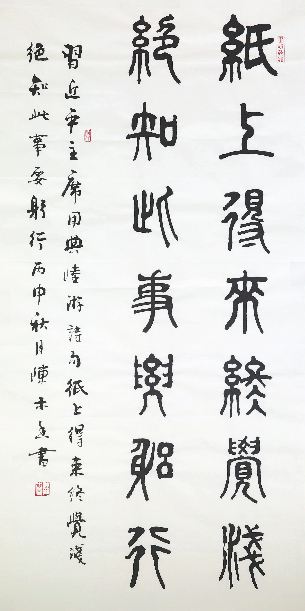 紙上得來終覺淺
絕知此事要躬行
習近平主席用典陸游詩句紙上得來終覺淺
絕知此事要躬行丙申秋月陳木書